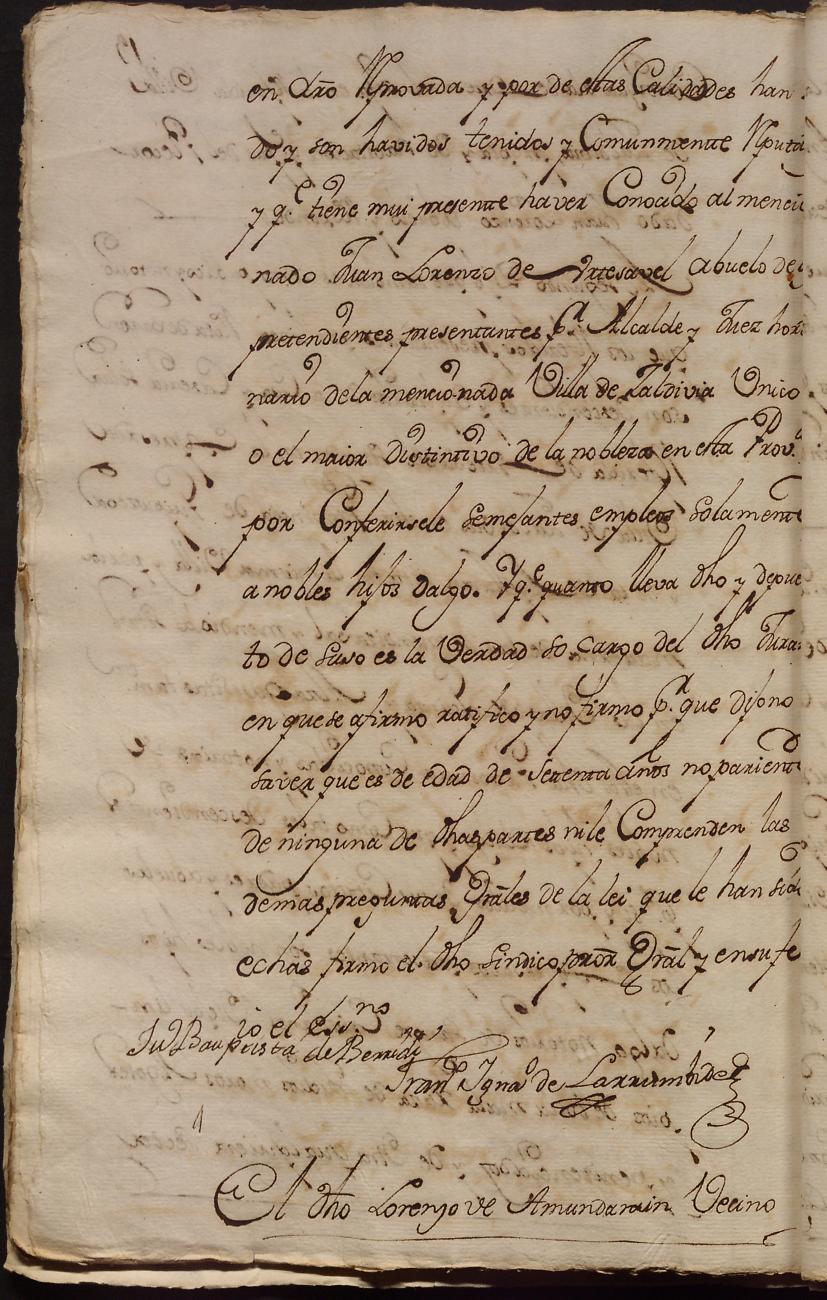 en dr̃o Rprovada y por de estas Calidades han
do y son havidos tenidos y Comunmente Rputa
y q.e tiene mui presente haver Conocido al mencio
nado Juan Lorenzo de Yrtesavel Abuelo de
pretendientes presentantes p.r Alcalde y Juez hor
nario dela mencionada Villa de Zaldivia Unico
o el maior Distintivo de la nobleza en esta Prov.a
por Conferirsele semejantes empleos solamente
a nobles hijos dalgo. Y q.e quanto lleva dho y depue
to de suso es la Verdad so cargo del dho Jura
en que se afirmo ratifico y no firmo p.r que dijo no
saver que es de edad de Setenta años no pariente
de ninguna de dhas partes ni le Comprenden las
demas preguntas Grãles de la lei que le han sido
echas firmo el dho sindico pror̃ Grãl y en su fe
io el ess.no
Ju Bauptista de
Fran.co Ygna.o de Larrumbide
El dho Lorenzo de Amundarain Vecino